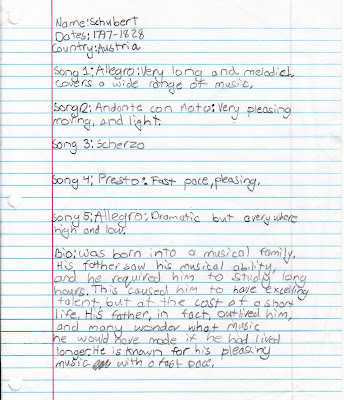 Name: Schubert
Dates; 1797-1828
Country: Austria
Song 1; Allegro: Very long and melodic,
covers a wide range of music,
Song 2; Andante con moto: Very pleasing
moving, and light.
Song 3: Scherzo
Song 4; Presto: Fast pace, pleasing.
Song 5; Allegro; Dramatic but everywhere
high and low.
Bio; Was born into a musical family.
His father saw his musical ability,
and he required him to study long
hours. This caused him to have excelling
talent, but at the cost of a short
life. His father, in fact, outlived him,
and many wonder what music
he would have made if he had lived
longer. He is known for his pleasing
music with a fast pace.